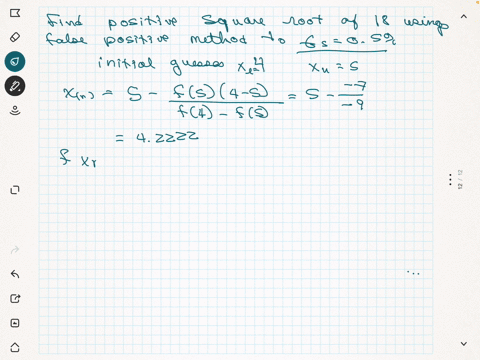 Find positive square root of 18 using
false positive method to εs = 0.5%
initial guesses xl = 4 xu = 5
x(r) = 5 - f(5)(4-5) / f(4) - f(5) = 5 - -7 / -9
= 4.2222
f xr
12 / 12